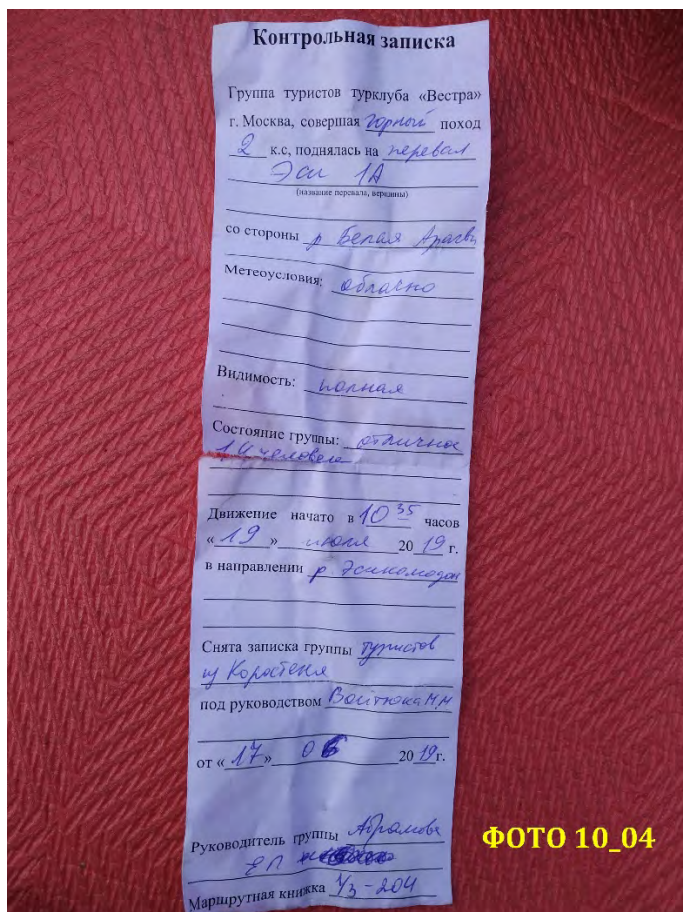 Контрольная записка
Группа туристов турклуба «Вестра»
г. Москва, совершая горный поход
2 к.с, поднялась на перевал
Эси 1А
(название перевала, вершины)
со стороны р Белая Арагви
Метеоусловия: облачно
Видимость: полная
Состояние группы: отличное
14 человек
Движение начато в 10 35 часов
« 19 » июля 20 19 г.
в направлении р. Эсикомидон
Снята записка группы туристов
из Коростеня
под руководством Войтюка М.М
от « 17 » 06 20 19 г.
Руководитель группы Абрамова
ЕП
Маршрутная книжка 1/3-204
ФОТО 10_04